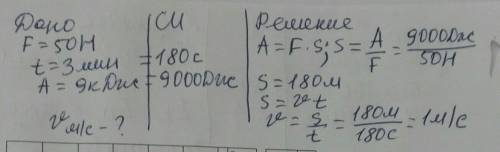 Дано
F = 50Н
t = 3мин
A = 9кДж
v м/с - ?
СИ
= 180с
= 9000Дж
Решение
A = F · S; S = A/F = 9000Дж/50Н
S = 180м
S = vt
v = S/t = 180м/180с = 1м/с